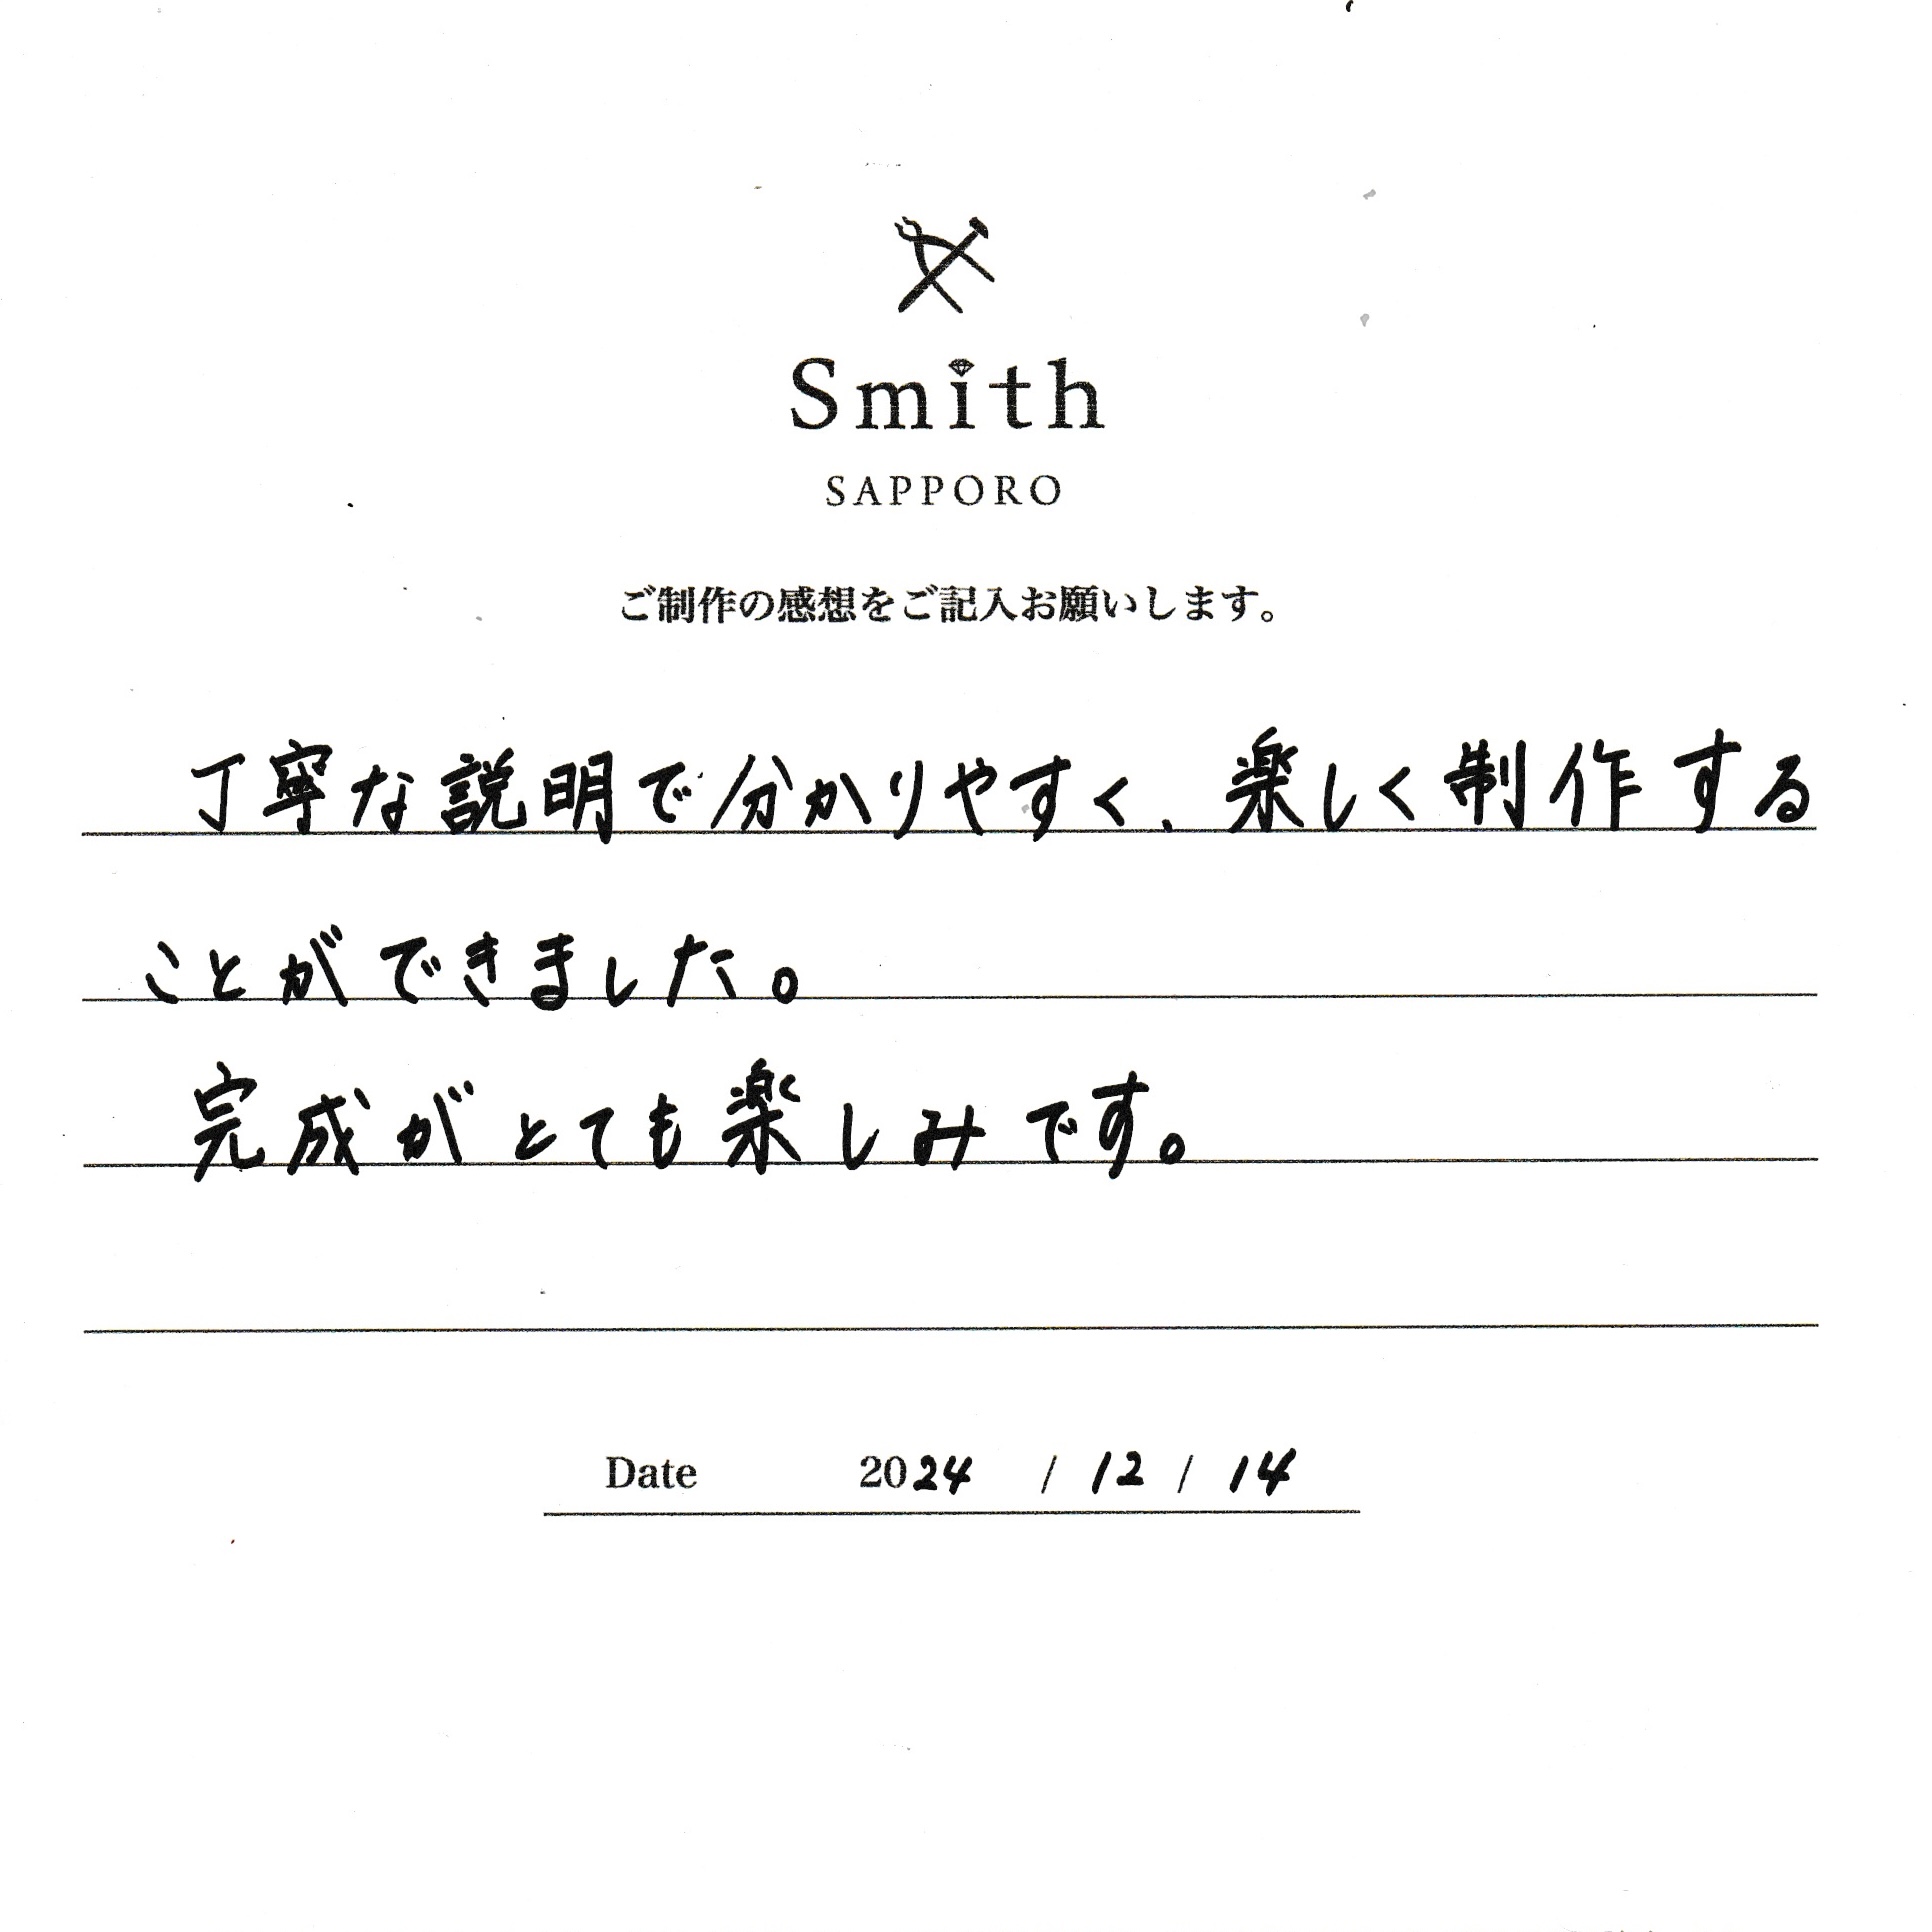 Smith
SAPPORO
ご制作の感想をご記入お願いします。
丁寧な説明で分かりやすく、楽しく制作する
ことができました。
完成がとても楽しみです。
Date 2024 / 12 / 14